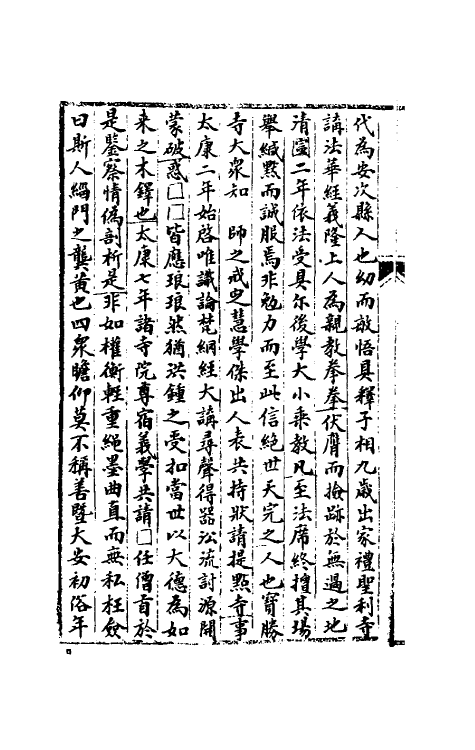 代為安次縣人也幼而敏悟具釋子相九歲出家禮聖利寺
講法華經義隆上人為親教拳拳伏膺而撿跡於無過之地
清寧二年依法受具尔後學大小乘教凡至法席終擅其場
舉緘默而誠服焉非勉力而至此信絕世天完之人也寶勝
寺大眾知　師之戒皃慧學傑出人表共持狀請提點寺事
太康二年始啓唯識論梵網經大講尋聲得器沿流討源開
蒙破惑□□皆應琅琅然猶洪鍾之受扣當世以大德為如
来之木鐸也太康七年諸寺院尊宿義學共請□任僧首於
是鑒察情偽剖析是非如權衡輕重繩墨曲直而無私枉僉
曰斯人緇門之龔黃也四眾瞻仰莫不稱善暨大安初俗年